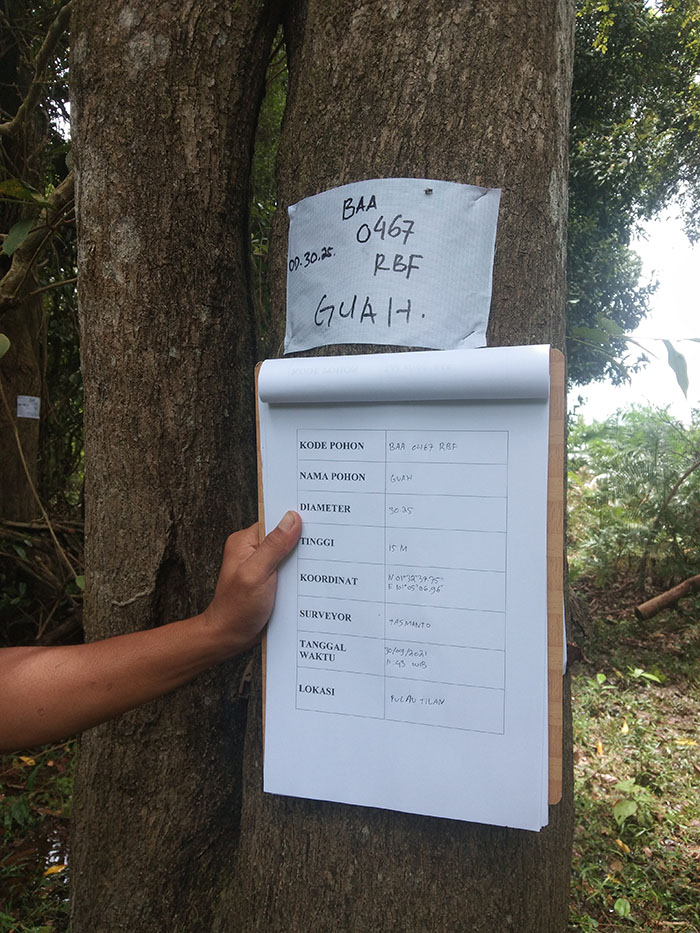 BAA
0467
OD.30.25.
RBF
GUAH.
KODE POHON BAA 0467 RBF
NAMA POHON GUAH
DIAMETER 30.25
TINGGI 15 M
KOORDINAT
SURVEYOR TASMANTO
TANGGAL 30/09/2021
WAKTU 11:43 WIB
LOKASI PULAU TILAN